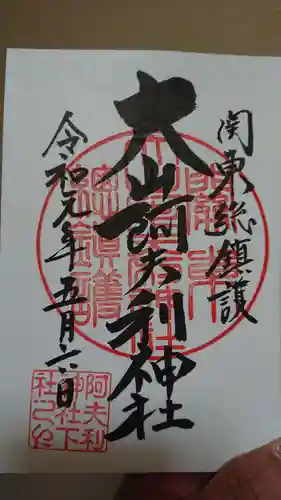 関東総鎮護
大山阿夫利神社
令和元年五月六日
阿夫利
神社下
社之印